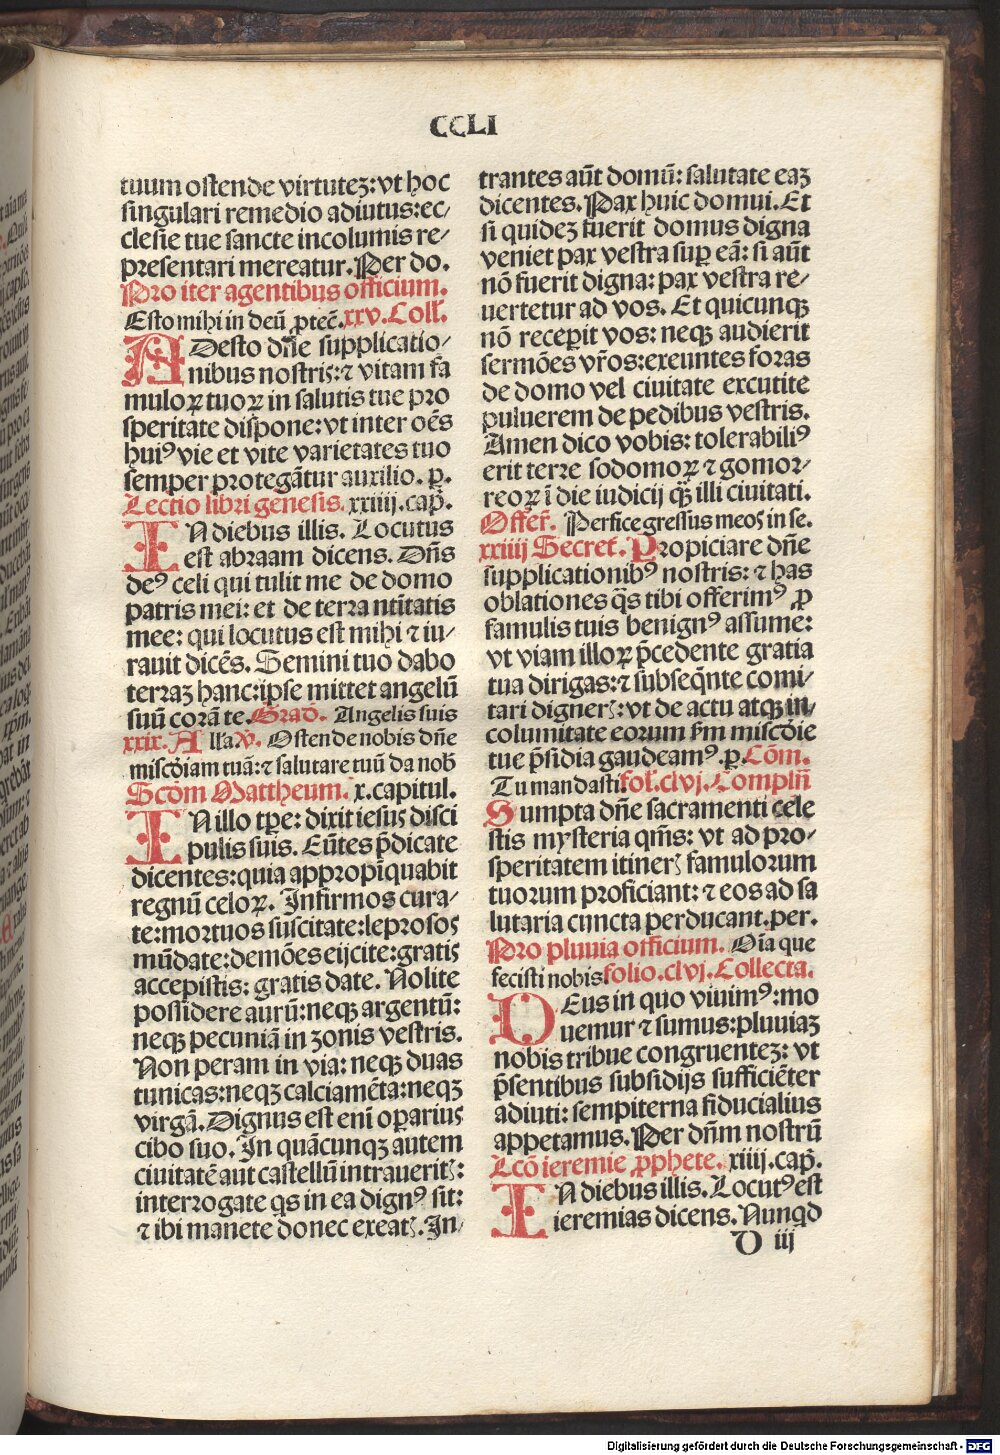 CCLI
tuum ostende virtutez: vt hoc
singulari remedio adiutus: ec/
clesie tue sancte incolumis re/
presentari mereatur. Per do.
Pro iter agentibus officium.
Esto mihi in deū ꝓtec̄. xxv. Coll̄.
ADesto dn̄e supplicatio/
nibus nostris: ⁊ vitam fa
muloꝝ tuoꝝ in salutis tue pro
speritate dispone: vt inter oēs
huiꝰ vie et vite varietates tuo
semper protegātur auxilio. p̄.
Lectio libri genesis. xxiiij. cap̄.
IN diebus illis. Locutus
est abraam dicens. Dn̄s
deꝰ celi qui tulit me de domo
patris mei: et de terra ntītatis
mee: qui locutus est mihi ⁊ iu/
rauit dicēs. Semini tuo dabo
terraz hanc: ipse mittet angelū
suū corā te. Grad̄. Angelis suis
xxix. Alla. V̄. Ostende nobis dn̄e
misc̄diam tuā: ⁊ salutare tuū da nob̄
Scōm Mattheum. x. capitul.
IN illo tp̄e: dixit iesus disci
pulis suis. Eūtes p̄dicate
dicentes: quia appropīquabit
regnū celoꝝ. Infirmos cura/
te: mortuos suscitate: leprosos
mūdate: demōes eijcite: gratis
accepistis: gratis date. Nolite
possidere aurū: neqꝫ argentū:
neqꝫ pecuniā in zonis vestris.
Non peram in via: neqꝫ duas
tunicas: neqꝫ calciamēta: neqꝫ
virgā. Dignus est enī oꝑarius
cibo suo. In quācunqꝫ autem
ciuitatē aut castellū intraueritꝭ:
interrogate q̄s in ea dignꝰ sit:
⁊ ibi manete donec exeatꝭ. In/
trantes aūt domū: salutate eaꝫ
dicentes. Pax huic domui. Et
si quidez fuerit domus digna
veniet pax vestra suꝑ eā: si aūt
nō fuerit digna: pax vestra re/
uertetur ad vos. Et quicunqꝫ
nō receꝑit vos: neqꝫ audierit
sermōes vr̄os: exeuntes foras
de domo vel ciuitate excutite
puluerem de pedibus vestris.
Amen dico vobis: tolerabiliꝰ
erit terre sodomoꝝ ⁊ gomor/
reoꝝ ī die iudicij qꝫ̄ illi ciuitati.
Offer̄. Perfice gressus meos in se.
xxiiij Secret̄. Propiciare dn̄e
supplicationibꝰ nostris: ⁊ has
oblationes q̄s tibi offerimꝰ ꝓ
famulis tuis benignꝰ assume:
vt viam illoꝝ p̄cedente gratia
tua dirigas: ⁊ subseq̄nte comi/
tari dignerꝭ: vt de actu atqꝫ in/
columitate eorum ꝼm misc̄die
tue p̄sidia gaudeamꝰ. p̄. Cōm.
Tu mandasti. fol̄. clvj. Compln̄
Sumpta dn̄e sacramenti cele
stis mysteria qm̄s: vt ad pro/
speritatem itinerꝭ famulorum
tuorum proficiant: ⁊ eos ad sa
lutaria cuncta perducant. per.
Pro pluuia officium. Oīa que
fecisti nobis. folio. clvj. Collecta.
DEus in quo viuimꝰ: mo
uemur ⁊ sumus: pluuiaz
nobis tribue congruentez: vt
p̄sentibus subsidijs sufficiēter
adiuti: sempiterna fiducialius
appetamus. Per dn̄m nostrū
Lcō ieremie ꝓphete. xiiij. cap̄.
IN diebus illis. Locutꝰ est
ieremias dicens. Nunqd
V iij
Digitalisierung gefördert durch die Deutsche Forschungsgemeinschaft - DFG